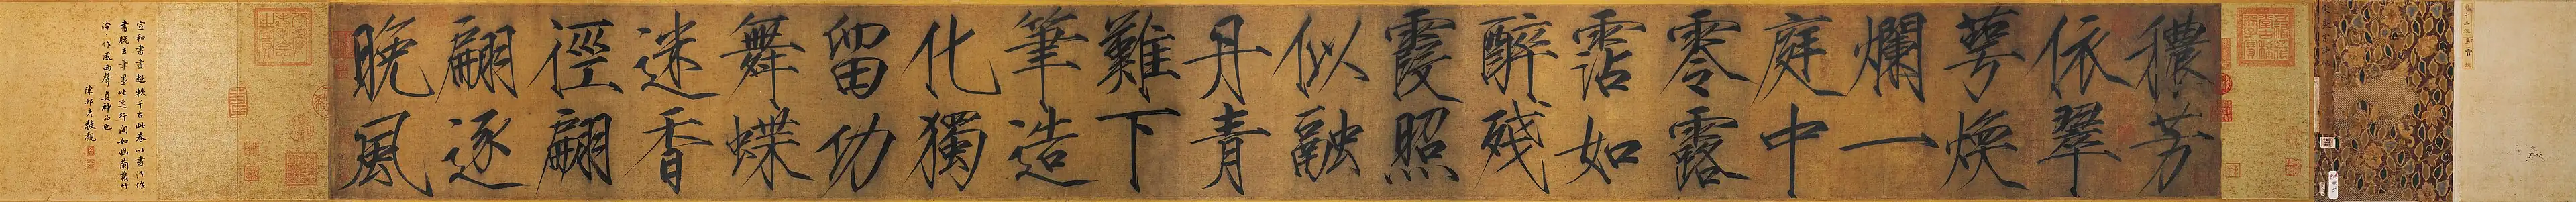 穠芳
依翠
萼煥
爛一
庭中
零露
霑如
醉殘
霞照
似融
丹青
難下
筆造
化獨
留功
舞蝶
迷香
徑翩
翩逐
晚風
宣和書畫超軼千古此卷以畫法作
書脫去筆墨畦逕行間如幽蘭叢竹
泠〻作風雨聲真神品也
陳邦彥敬觀